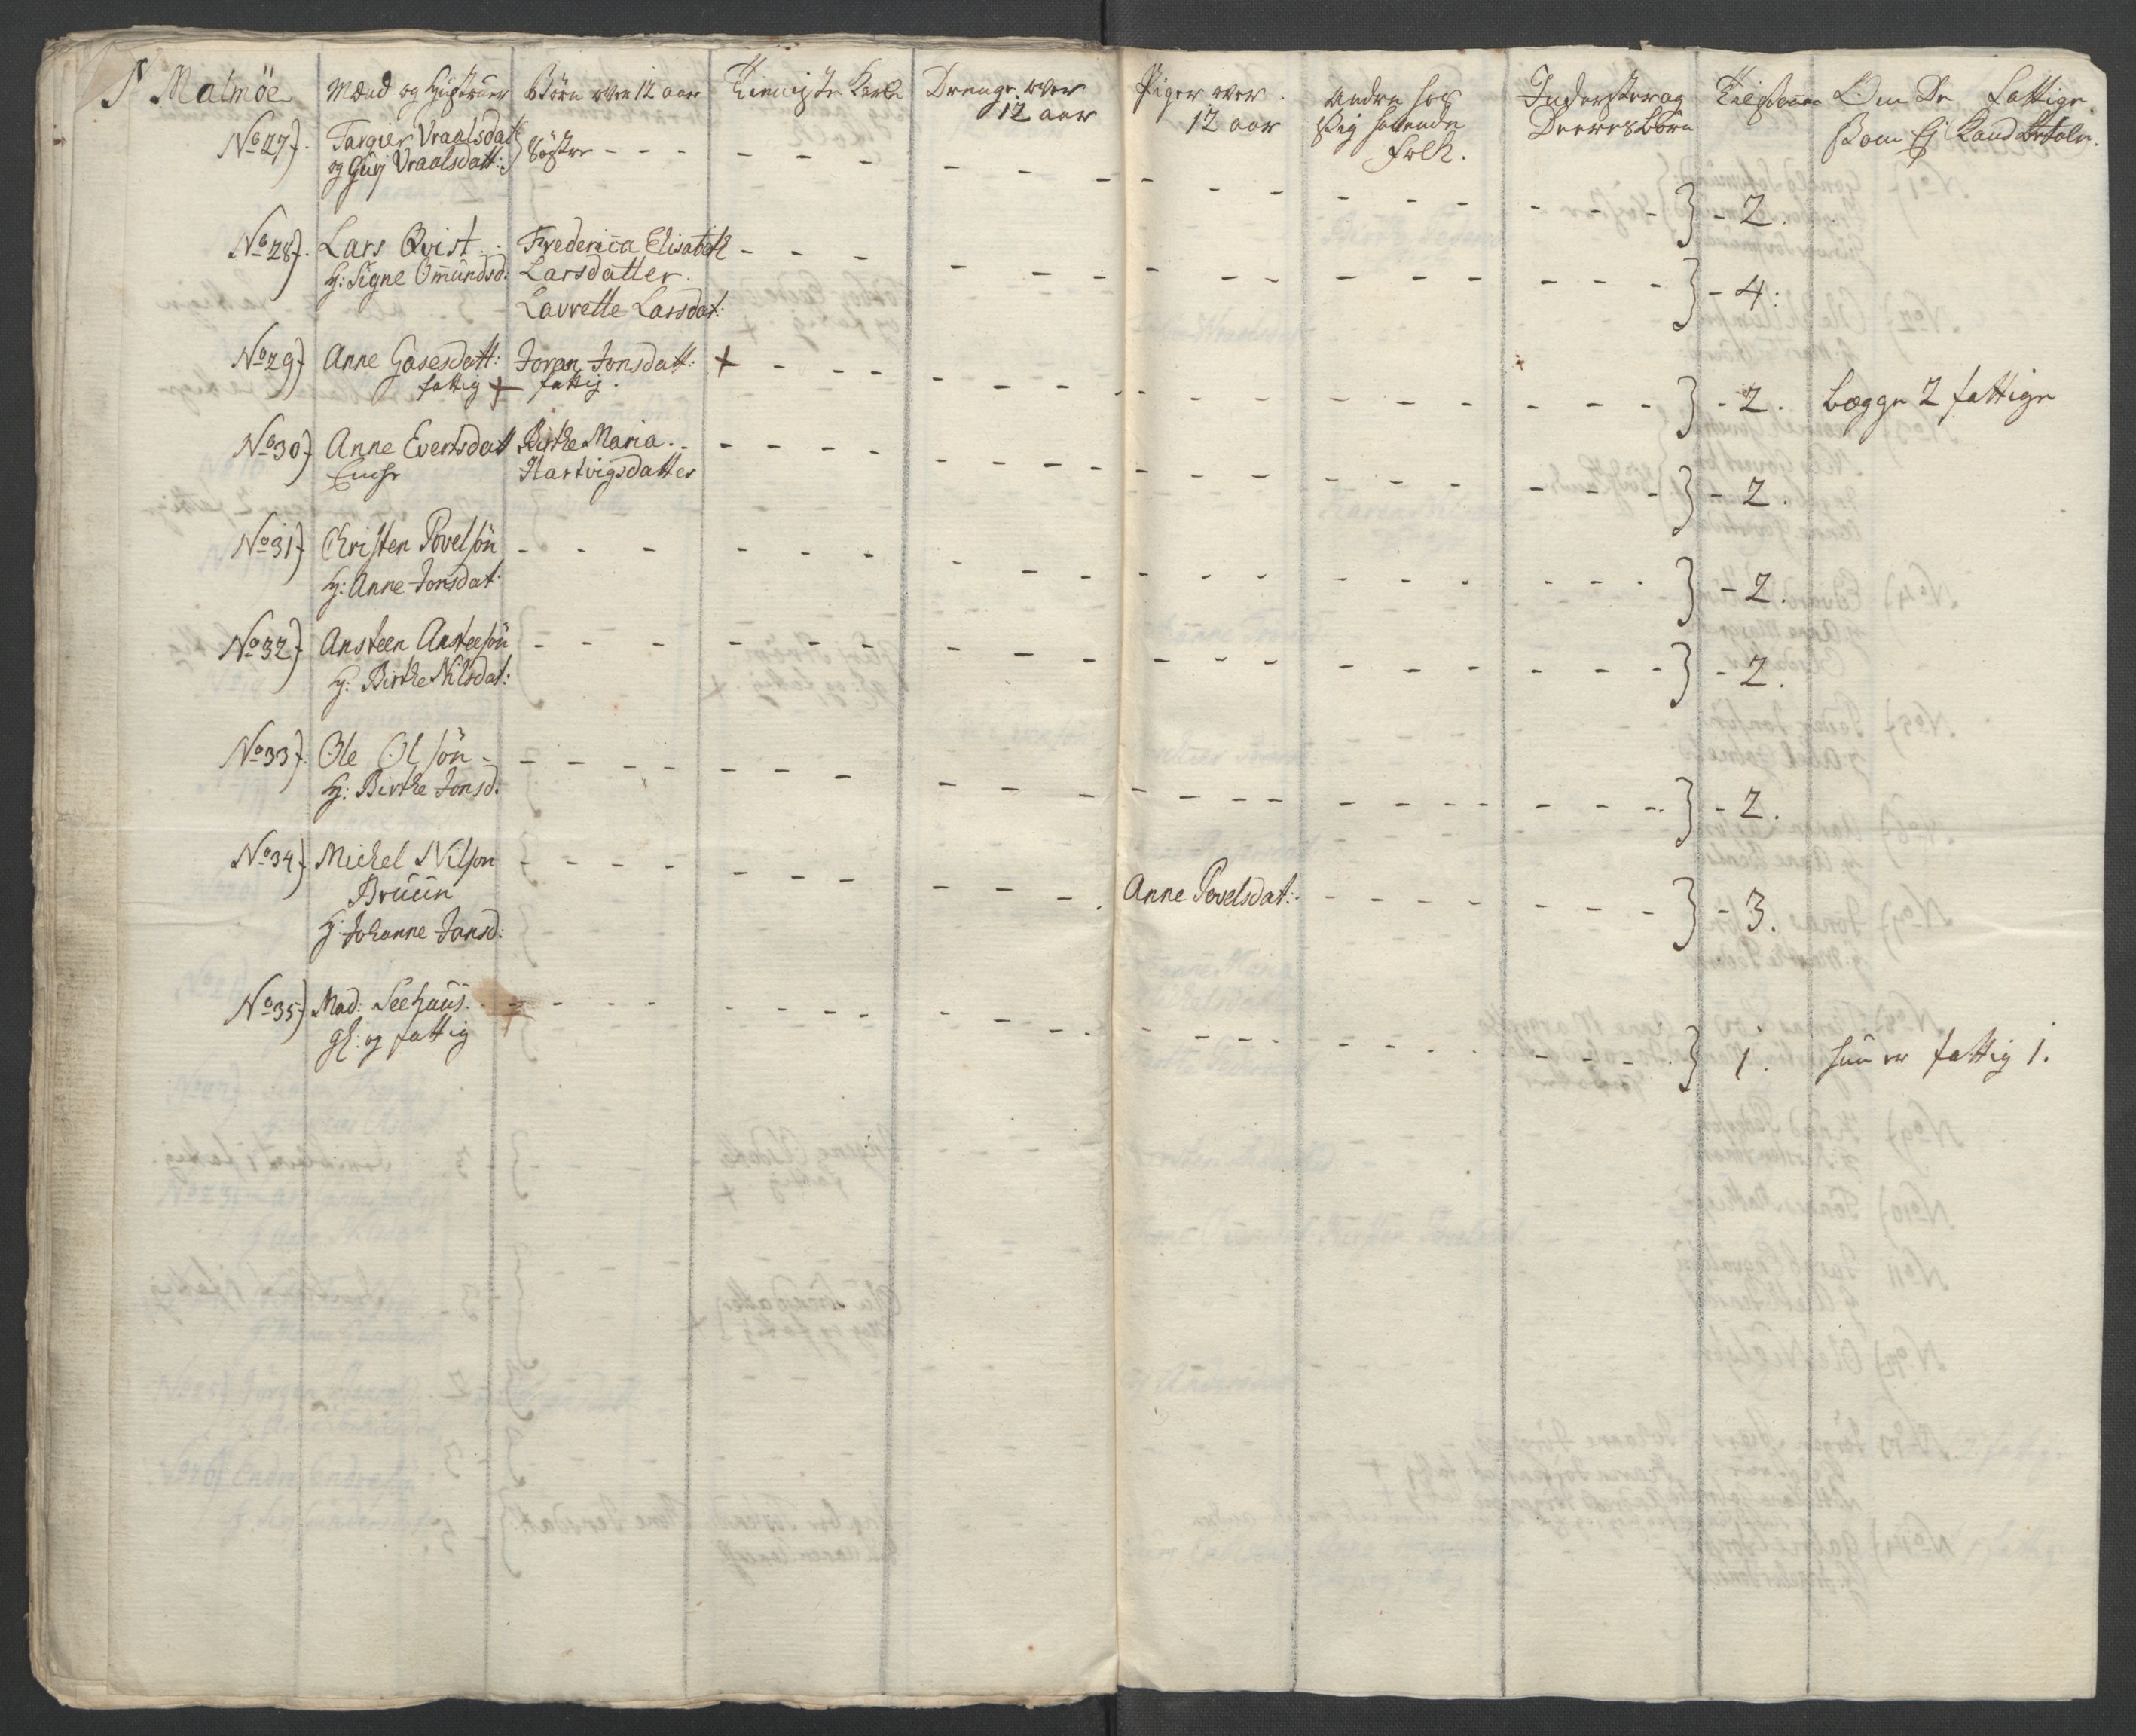 Malmöe
Mænd og Hustruer
Börn over 12 aar
Tienniste Karle
Drenge over
12 aar
Piger over
12 aar
Andre hos
sig havende
folk.
Inderster og
Deeres Börn
Om De fattige
som Ej Kand betale.
No 27) Targier Vraalsdat
og Gurj Vraalsdatt: } Söstre - - - - 2.
No 28) Lars Qvist - Frederica Elisabeth
H: Signe Omundsd: Larsdatter.
Lavrette Larsdat: - 4:
No 29) Anne Gasesdatt: Joran Jonsdatt: +
fattig + fattig. - 2. begge 2 fattige
No 30) Anne Evertsdatt Birthe Maria.
Enche Hartvigsdatter - 2.
No 31) Christen Povelsön
H: Anne Jonsdat: - 2.
No 32) Ansteen Ansteensön
H: Birthe Nilsdat: - 2.
No 33) Ole Olsön
H: Birthe Jonsd: - 2.
No 34) Michel Nilson
Bruun
H: Johanne Jansd: Anne Povelsdat: - 3.
No 35) Mad: Seehuus.
gl: og fattig 1. hun er fattig 1.